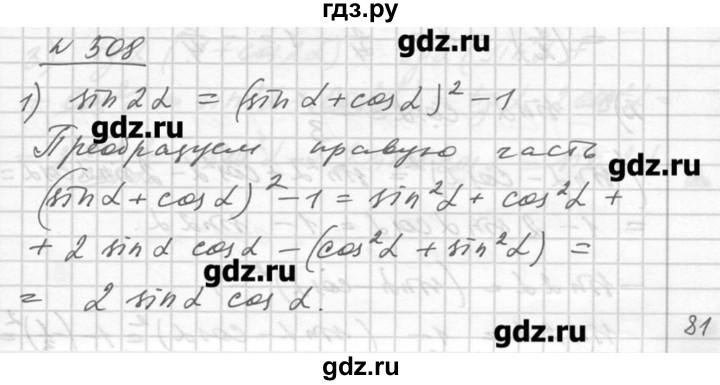 гдз.ру
gdz.ru
№ 508
1) sin 2α = (sin α + cos α)² - 1
gdz.ru
Преобразуем правую часть
gdz.ru
(sin α + cos α)² - 1 = sin²α + cos²α +
+ 2 sin α cos α - (cos²α + sin²α) =
gdz.ru
= 2 sin α cos α.
gdz.ru
81
gdz.ru